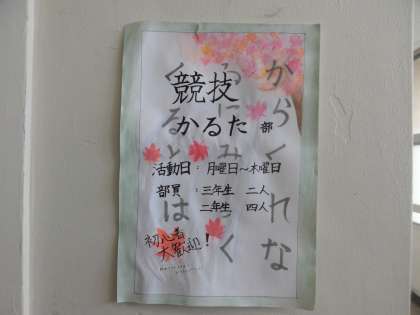 競技
かるた 部
活動日：月曜日～木曜日
部員：三年生 二人
二年生 四人
初心者
大歓迎！
からくれな
ゐにみづく
くるとは